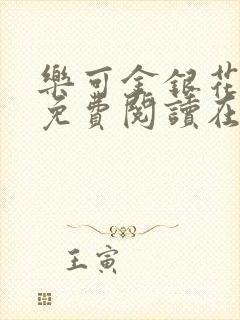 樂可金銀花
免費閱讀在
王寅